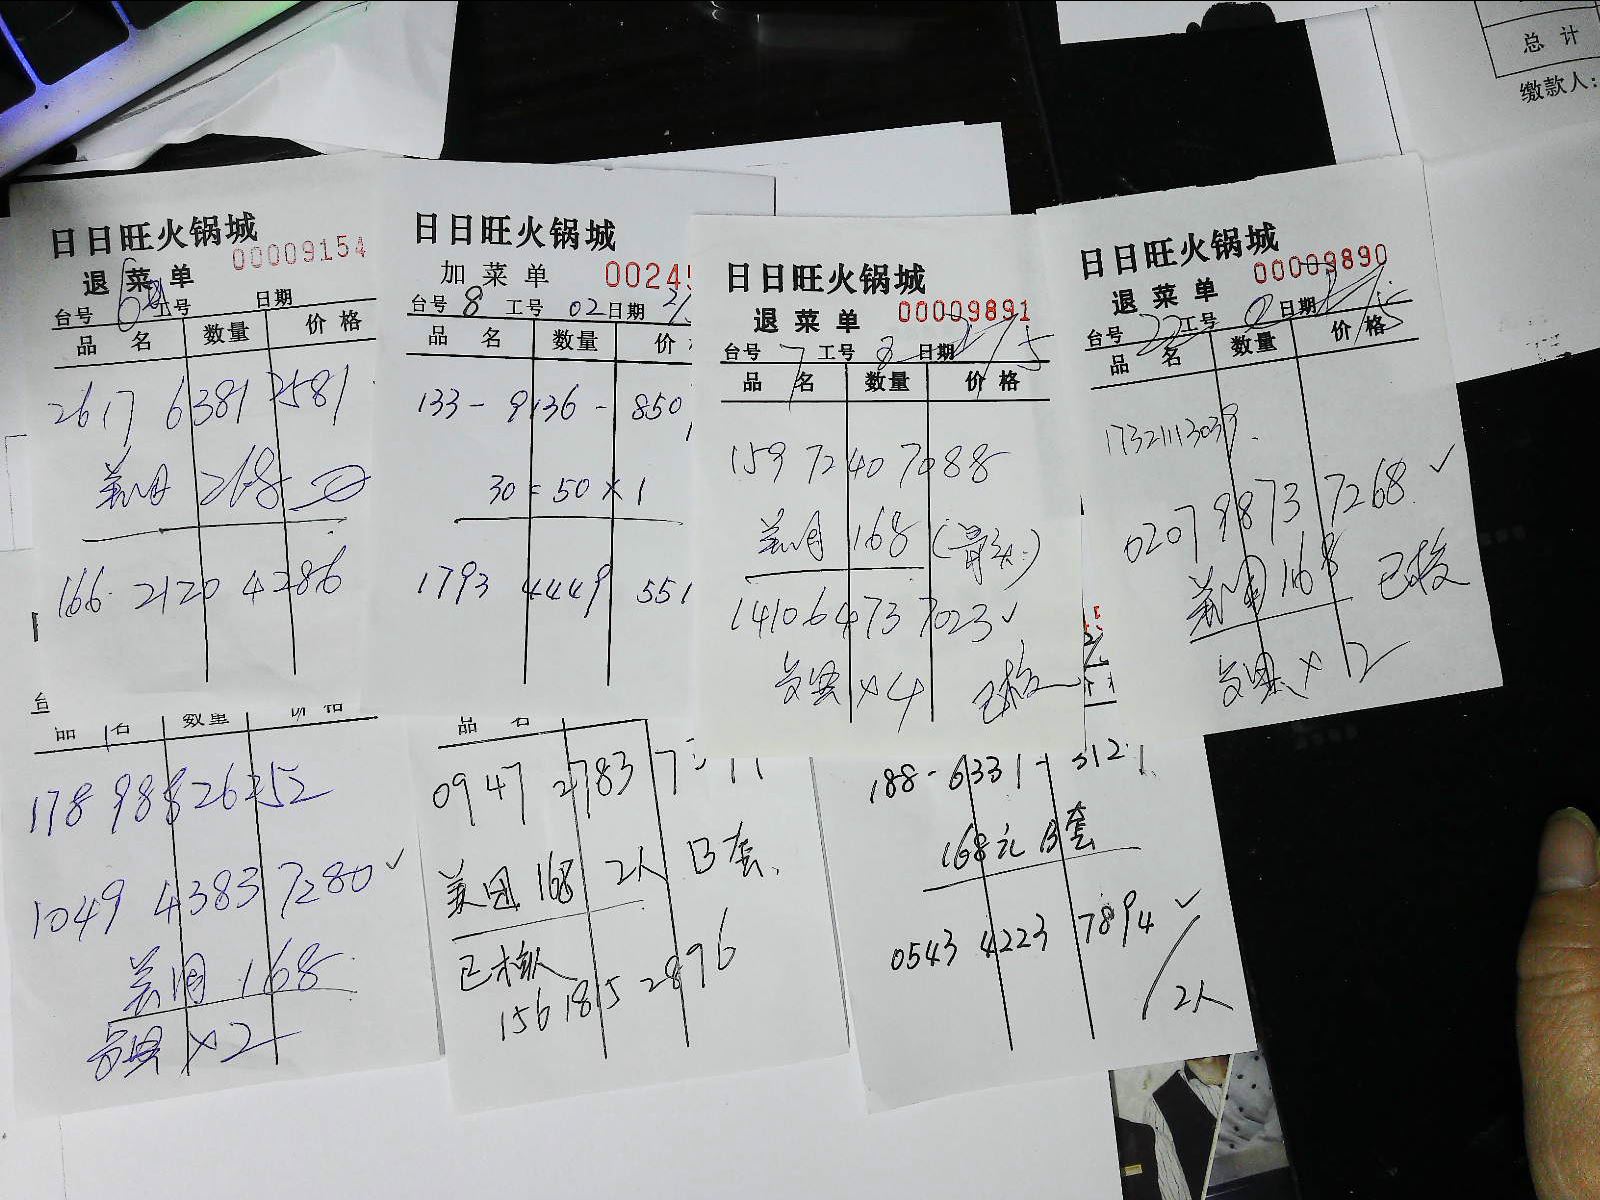 总 计
缴款人:
日日旺火锅城
退 菜 单 00009154
台号 工号 日期
品 名 数量 价 格
2617 6381 2581
美团 268
166 2120 4286
日日旺火锅城
加 菜 单 00245
台号 8 工号 02 日期
品 名 数量 价
133 - 9136 - 850
30 = 50 × 1
1793 4449 551
日日旺火锅城
退 菜 单 00009891
台号 7 工号 日期
品 名 数量 价 格
159 7240 7088
美团 168
14106473 7023 ✓
×4 已核
日日旺火锅城
退 菜 单 00009890
台号 22 工号 日期
品 名 数量 价 格
17321113039
0207 9873 7268 ✓
美团 168 已核
× 2
台
品 名 数量 价 格
178 98826252
1049 4383 7280 ✓
美团 168
×2
品 名
0947 2783
美团 168 2人 B套
已核
156 1815 2896
188 - 6331 - 3121
168元 B套
0543 4223 7894 ✓
2人